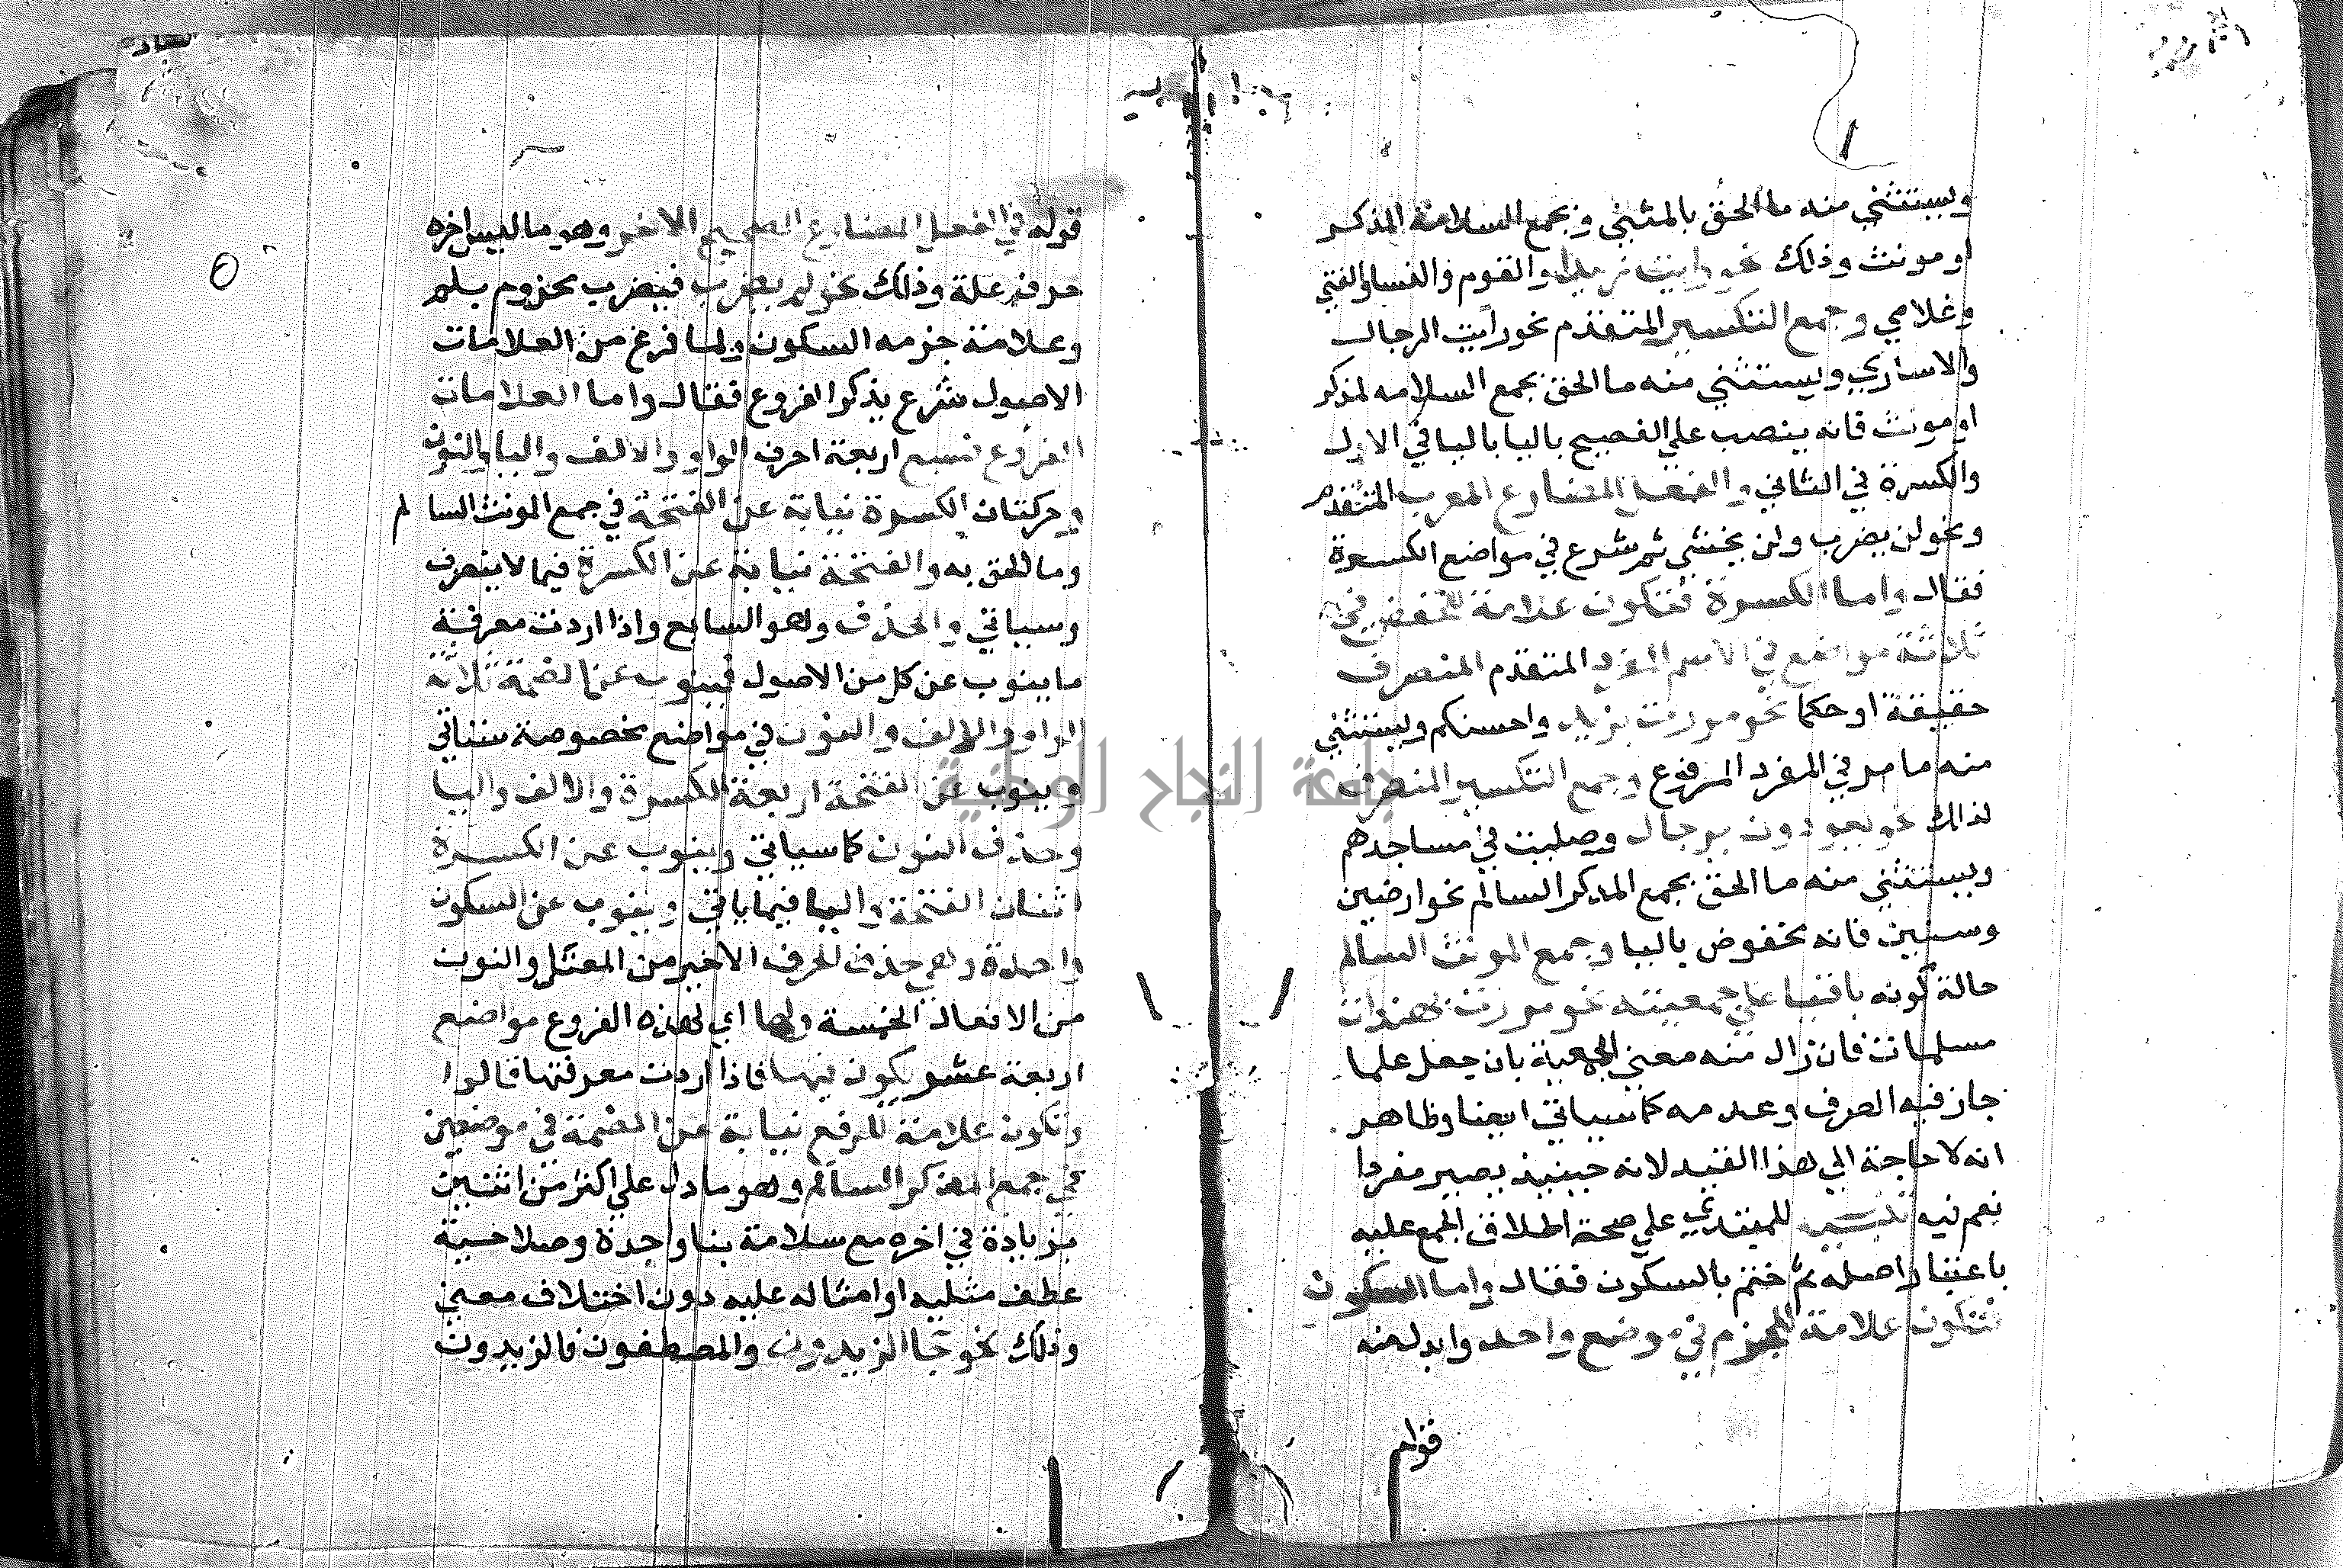 ويستثني منه ما الحق بالمثنى وبجمع السلامة المذكر
او مونث وذلك نحو رايت زيدا والقوم والنسا والفتي
وغلامي وجمع التكسير المتقدم نحو رايت الرجال
والاساري ويستثني منه ما الحق بجمع السلامه لمذكر
او مونث فانه ينصب علي الفصيح باليا باليا في الاول
والكسرة في الثاني والفعل المضارع المعرب المتقدم
ونحو لن يضرب ولن يخشي ثم شرع في مواضع الكسرة
فقال واما الكسرة فتكون علامة للخفض في
ثلاثة مواضع في الاسم المفرد المتقدم المنصرف
حقيقة او حكما نحو مررت بزيد واحسنكم ويستثني
منه ما مر في المفرد المرفوع وجمع التكسير المنصرف
لذلك نحو يعوذون برجال وصليت في مساجدهم
ويستثني منه ما الحق بجمع المذكر السالم نحو ارضين
وسنين فانه مخفوض باليا وجمع المونث السالم
حالة كونه باقيا علي جمعيته نحو مررت بهندات
مسلمات فان زال منه معني الجمعية بان جعل علما
جاز فيه الصرف وعدمه كما سياتي ايضا وظاهر
انه لا حاجة الي هذا القيد لانه حينيذ يصير مفردا
نعم فيه للمبتدي علي صحة اطلاق الجمع عليه
باعتبار اصله ثم ختم بالسكون فقال واما السكون
فتكون علامة للجزم في موضع واحد وابدل منه
قوله
قوله في الفعل المضارع الصحيح الاخر وهو ما ليس اخره
حرف علة وذلك نحو لم يضرب فيضرب مجزوم بلم
وعلامة جزمه السكون ولما فرغ من العلامات
الاصول شرع يذكر الفروع فقال واما العلامات
الفروع فسبع اربعة احرف الواو والالف واليا والنون
وحركتان الكسرة نيابة عن الفتحة في جمع المونث السالم
وما الحق به والفتحة نيابة عن الكسرة فيما لا ينصرف
وسياتي والحذف وهو السابع واذا اردت معرفة
ما ينوب عن كل من الاصول فينوب عن الضمة ثلاثة
الواو والالف والنون في مواضع مخصوصة ستاتي
وينوب عن الفتحة اربعة الكسرة والالف واليا
وحذف النون كما سياتي وينوب عن الكسرة
اثنان الفتحة واليا فيما ياتي وينوب عن السكون
واحدة وهو حذف الحرف الاخير من المعتل والنون
من الافعال الخمسة ولها اي لهذه الفروع مواضع
اربعة عشر يكون فيها فاذا اردت معرفتها فالوا
وتكون علامة للرفع نيابة عن الضمة في موضعين
في جمع المذكر السالم وهو ما دل علي اكثر من اثنين
بزيادة في اخره مع سلامة بنا واحدة وصلاحية
عطف مثليه او امثاله عليه دون اختلاف معني
وذلك نحو جا الزيدون والمصطفون فالزيدون
جامعة النجاح الوطنية